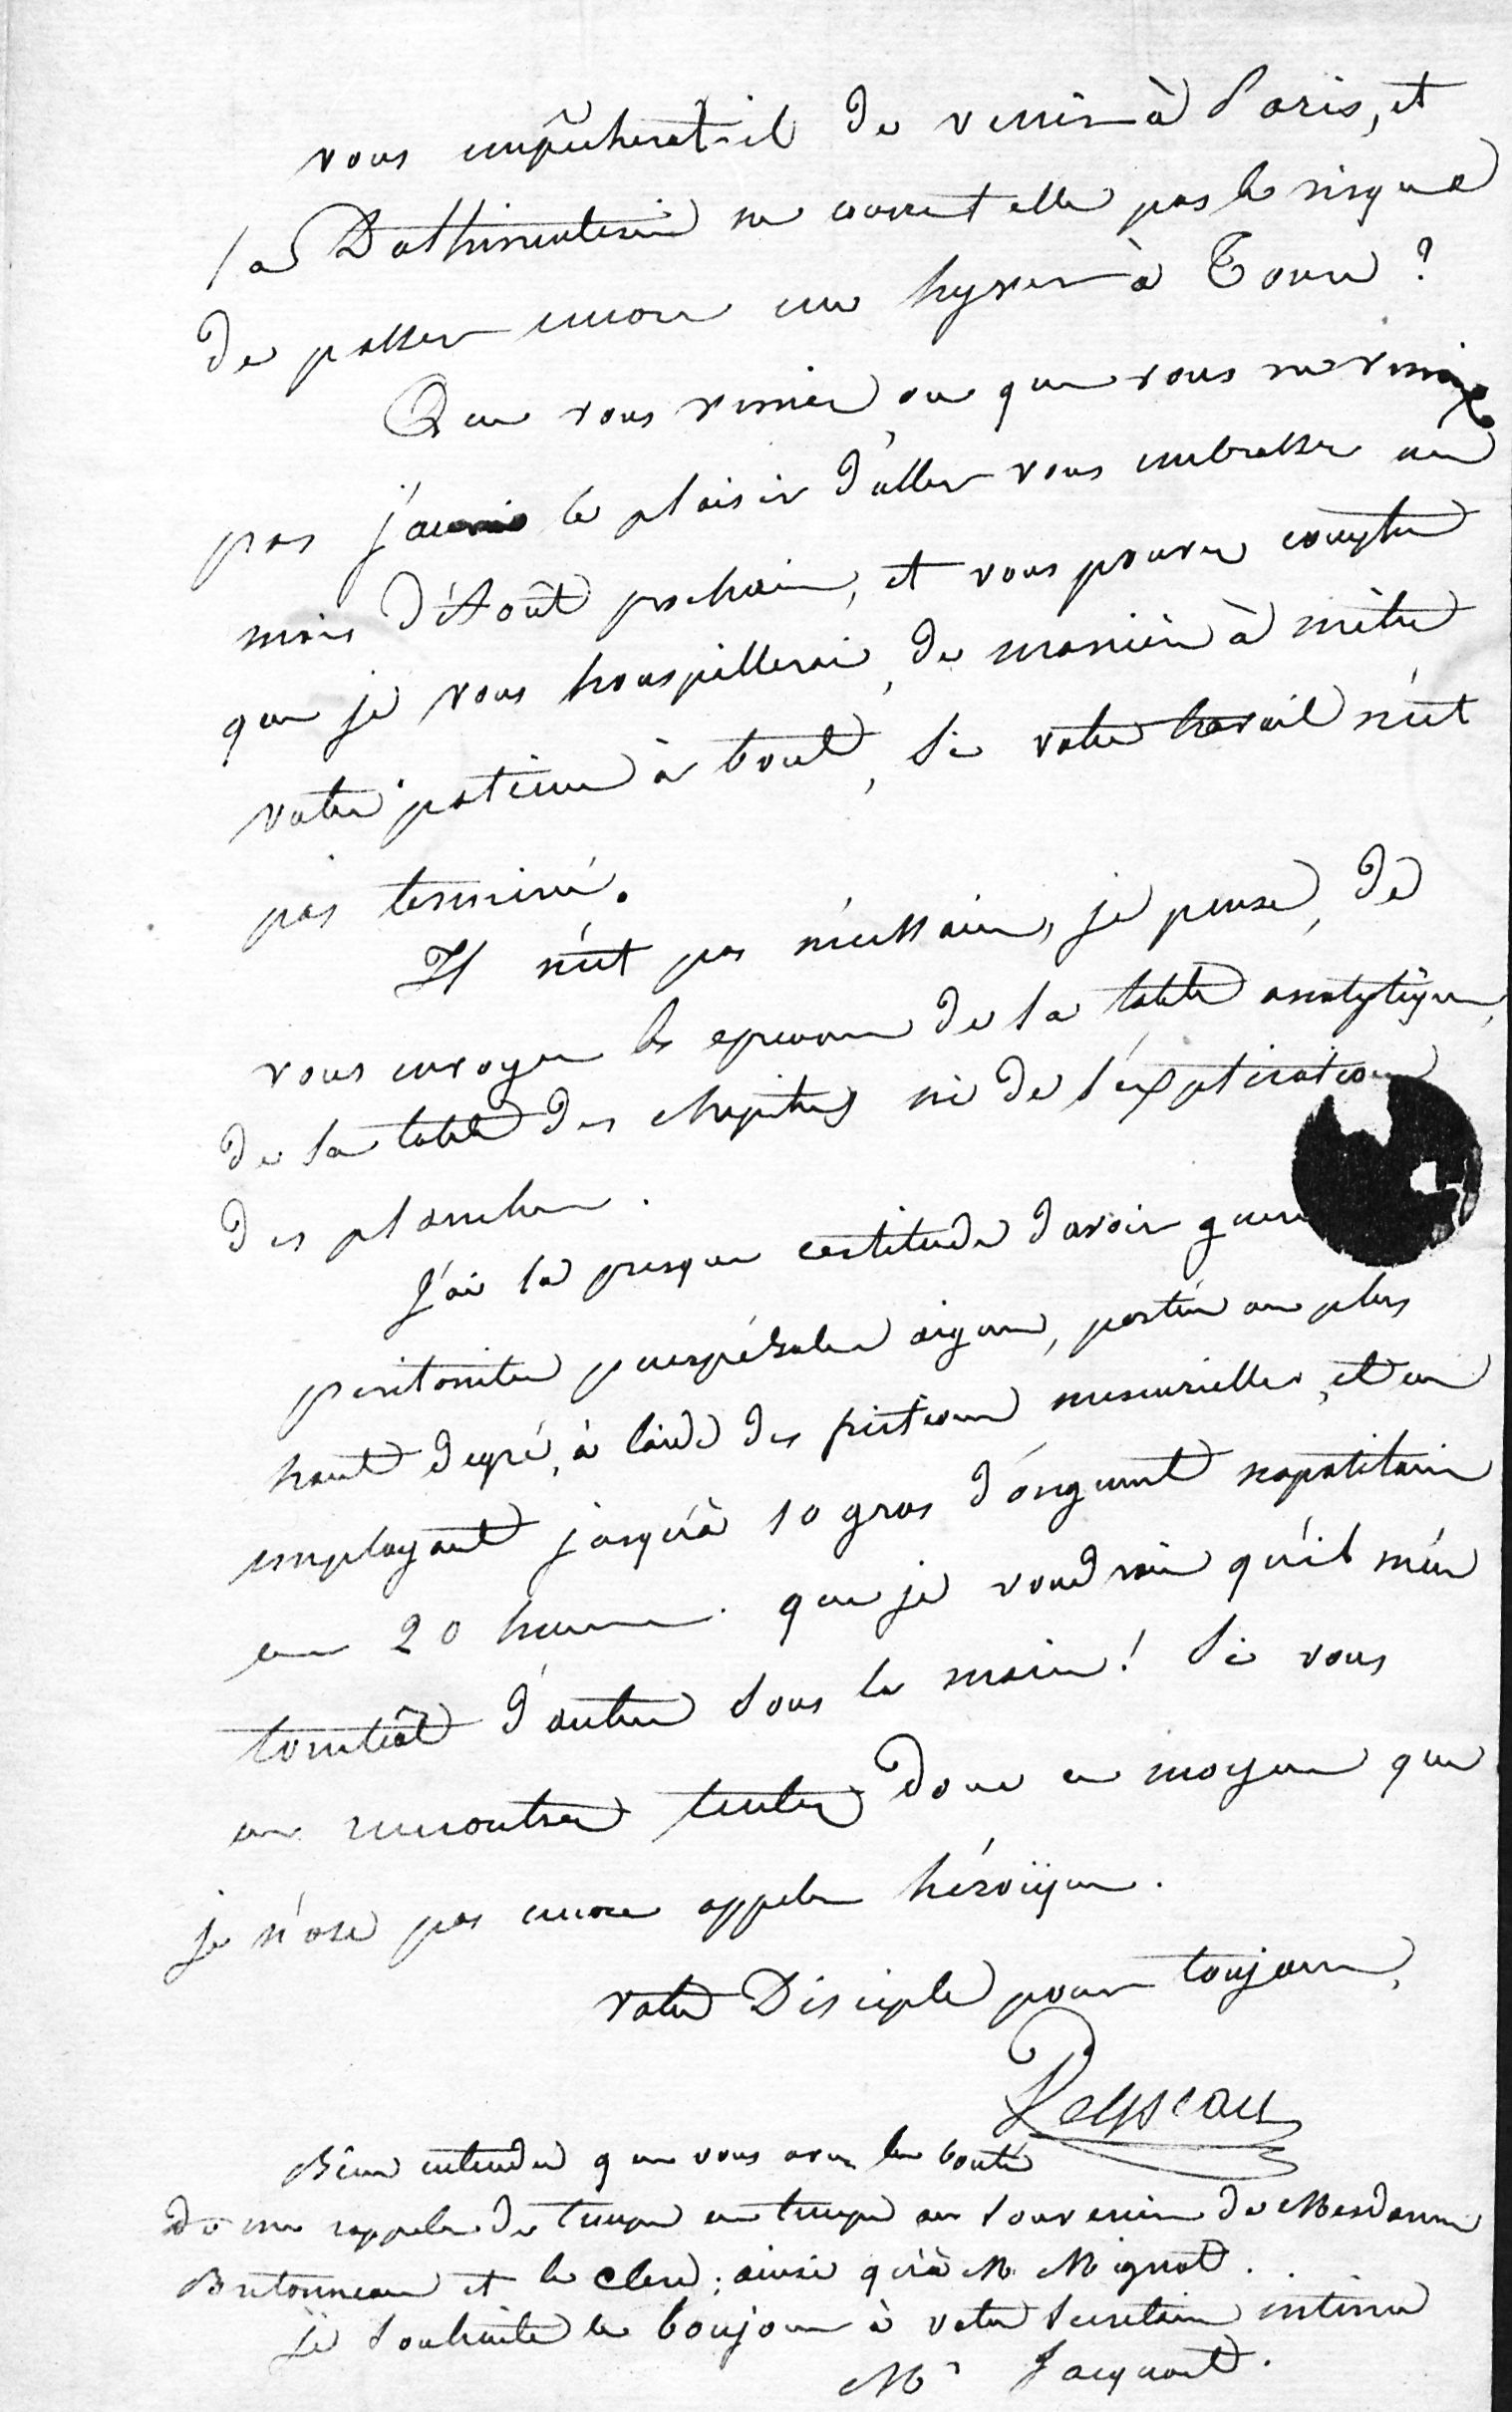 vous empêcherat-il de venir à Paris, et
la Dothinenterie ne court elle pas le risque
de passer encore un hyver à Tours ?
Que vous veniez, ou que vous ne veniez
pas j'aurai le plaisir d'aller vous embrasser au
mois d'Août prochain, et vous pouvez compter
que je vous houspillerai, de manière à mètre
votre patience à bout, si votre travail n'est
pas terminé.
Il n'est pas nécessaire, je pense, de
vous envoyer les epreuves de la table analytique,
de la table des chapitres ni de l'explication
des planches.
J'ai la presque certitude d'avoir gueri
peritonite puerpérale aigue, portée au plus
haut degré, à l'aide des frictions mercurielles, et en
employant jusqu'à 10 gros d'onguent napolitain
en 20 heures. que je voudrais qu'il m'en
tombât d'autres sous la main ! Si vous
en rencontrez tentez donc ce moyen que
je n'ose pas encore appeler héroïque.
votre Disciple pour toujours,
Bien entendu que vous avez la bonté
de me rappeler de temps en temps au souvenir de Mesdames
Bretonneau et le Clerc ; ainsi qu'à M. Mignot.
Je souhaite le bonjour à votre secrétaire intime
Mr Jacquart.